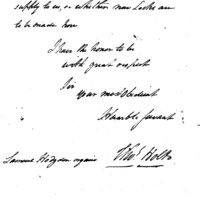 supply to us, or whether new Locks are
to be made here
I have the honor to be
with great respect
Sir
your most Obedient
Humble Servant
Samuel Hodgdon esquire